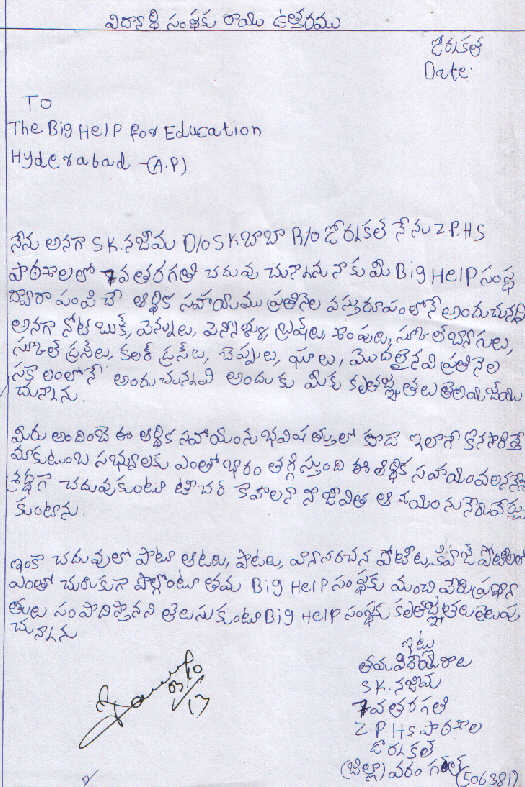 విద్యార్థి సంస్థకు రాయు ఉత్తరము
జోరుకల
Date:
TO
The Big Help for Education
Hyderabad -(A.P)
నేను అనగా S.K.నజీమ D/o S.K.బాబా R/o జోరుకల నేను Z.P.H.S
పాఠశాలలో 7వ తరగతి చదువు చున్నాను నాకు మీ Big Help సంస్థ
ద్వారా పంపించే ఆర్థిక సహాయము ప్రతినెల వస్తురూపంలోనే అందుచున్నవి
అనగా నోట్ బుక్స్, పెన్నులు, పెన్సిళ్ళు, బ్రష్‌లు, పౌడర్, స్కూల్ బ్యాగులు,
స్కూల్ డ్రస్‌లు, కలర్ డ్రస్‌లు, చెప్పులు, షూలు, మొదలైనవి ప్రతినెల
సకాలంలోనే అందుచున్నవి అందుకు మీకు కృతజ్ఞతలు తెలియజేయు
చున్నాను.
మీరు అందించే ఈ ఆర్థిక సహాయంను భవిష్యత్తులో కూడా ఇలానే కొనసాగిస్తే
మాకుటుంబ సభ్యులకు ఎంతో భారం తగ్గిస్తుంది ఈ ఆర్థిక సహాయంవలననేను
చదువుకుంటూ టీచర్ కావాలనే నా జీవిత ఆశయంను నెరవేర్చు
కుంటాను.
ఇంకా చదువుతో పాటు ఆటలు, పాటలు, వ్యాసరచన పోటీలు, క్విజ్ పోటీలలో
ఎంతో చురుకుగా పాల్గొంటూ తమ Big Help సంస్థకు మంచి పేరు ప్రఖ్యా
తులు సంపాదిస్తానని తెలుసుకుంటూ Big Help సంస్థకు కృతజ్ఞతలు తెలుపు
చున్నాను
ఇట్లు
తమ విధేయురాలు
S.K.నజీమ
7వ తరగతి
Z P H s పాఠశాల
జోరుకల
(జిల్లా) వరంగల్ (506381)
03/10/13